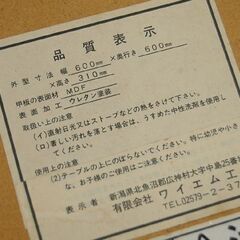 品質表示
外型寸法 幅 600㎜ ×奥行き 600㎜
×高さ 310㎜
甲板の表面材 MDF
表面加工 ウレタン塗装
取扱い上の注意
(イ)直射日光又はストーブなどの熱を
(ロ)著しい汚れを落とす場合は、うすめた中性洗剤を使用し
使用上の注意
(2)テーブルの上にのぼらないでください。特に幼児や小さ
など
表示者 新潟県北魚沼郡広神村大字中島25番
有限会社 ワイエム工
TEL02579-2-37